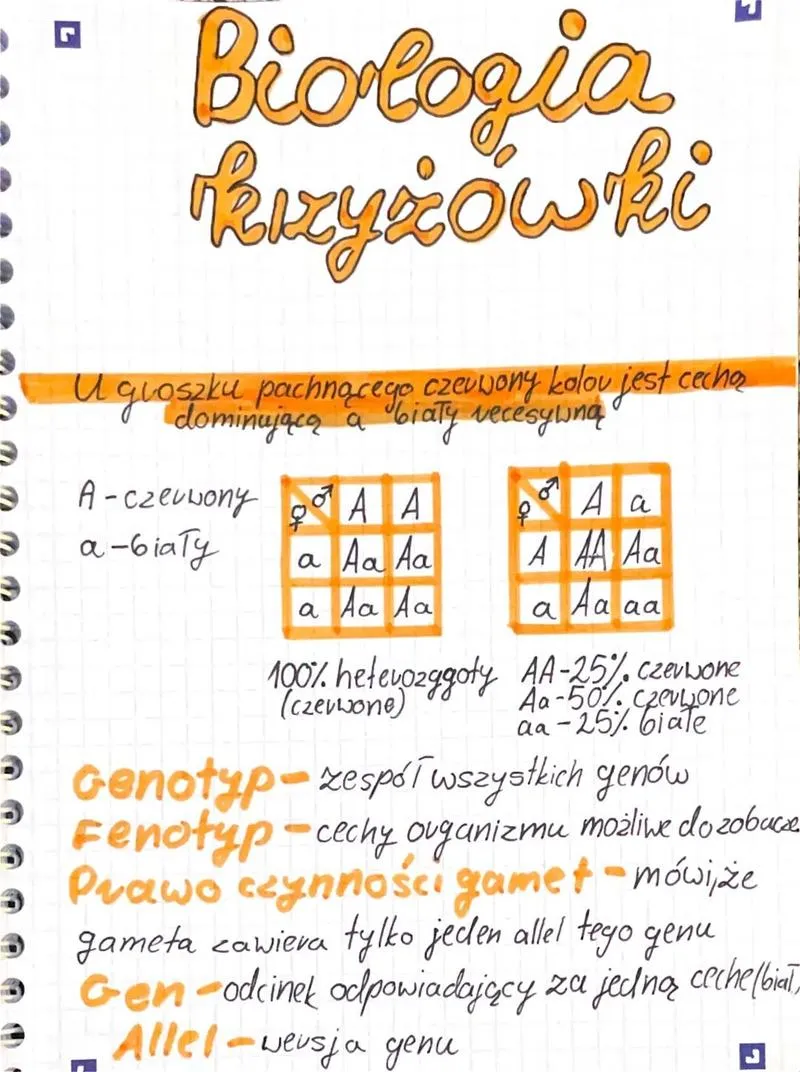 Biologia
krzyżówki
U groszku pachnącego czerwony kolor jest cechą
dominującą a biały recesywną
A - czerwony
a - biały
♀ ♂ A A
a Aa Aa
a Aa Aa
100% heterozygoty
(czerwone)
♀ ♂ A a
A AA Aa
a Aa aa
AA - 25% czerwone
Aa - 50% czerwone
aa - 25% białe
Genotyp - zespół wszystkich genów
Fenotyp - cechy organizmu możliwe do zobacze
Prawo czynności gamet - mówi, że
gameta zawiera tylko jeden allel tego genu
Gen - odcinek odpowiadający za jedną ceche (biał,
Allel - wersja genu